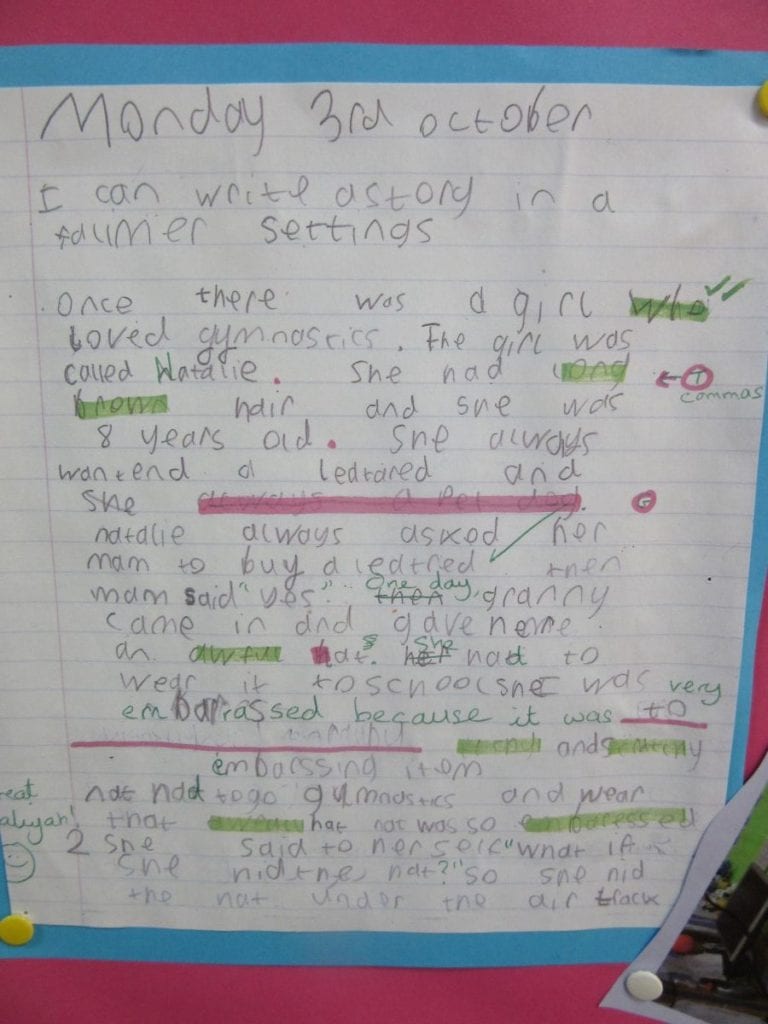 Monday 3rd october
I can write astory in a
faumer settings
once there was a girl who
loved gymnastics. The girl was
called Natalie. she had long
T
commas
brown hair and she was
8 years old. she always
wantend a ledtared and
she always a pet dog.
G
natalie always asked her
mam to buy a ledtred then
mam said "yes". then One day, granny
came in and gave
an awful hat. her she had to
wear it to school she was very
embarrassed because it was to
and
embarssing item
nat had togo gymnastics and wear
that hat nat was so embaressed
2 she said to herself "what if
she hid the hat?" so she hid
the hat under the air track